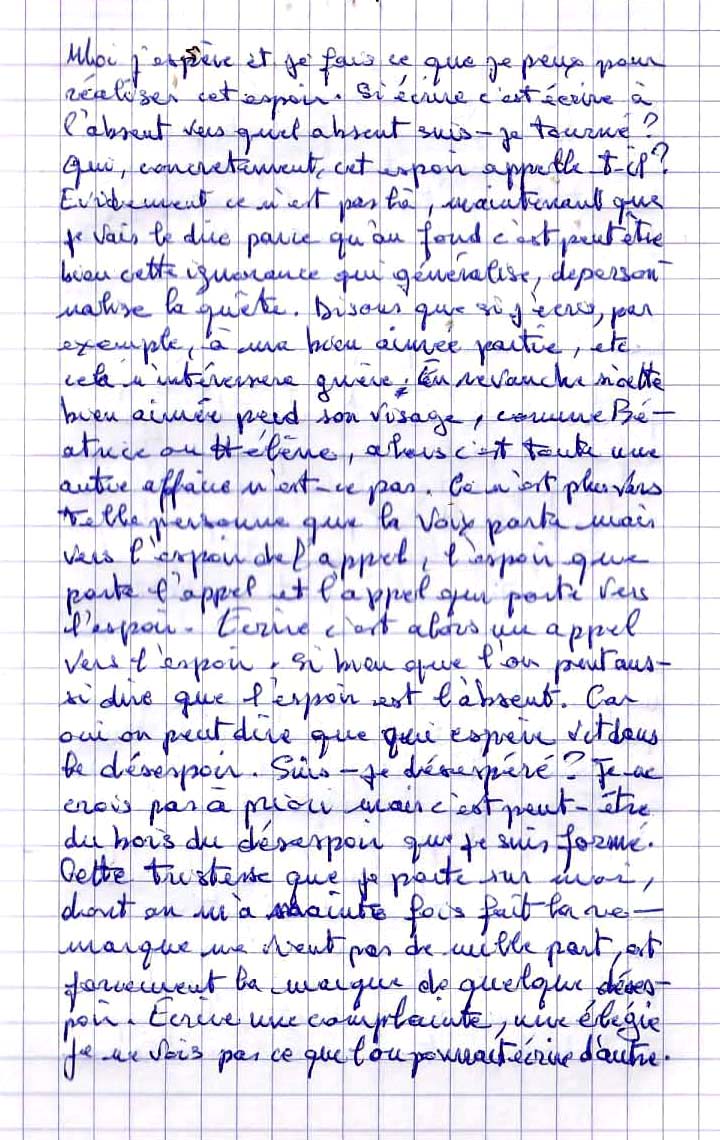 Moi j'espère et je fais ce que je peux pour
réaliser cet espoir. Si écrire c'est écrire à
l'absent vers quel absent suis-je tourné?
Qui, concrètement, cet espoir appelle t-il?
Evidement ce n'est pas là, maintenant que
je vais le dire parce qu'au fond c'est peut être
bien cette ignorance qui généralise, déperson-
nalise la quête. Disons que si j'écris, par
exemple, à ma bien aimée partie, etc
cela n'intéressera guère. En revanche si cette
bien aimée perd son visage, comme Bé-
atrice ou Hélène, alors c'est toute une
autre affaire n'est-ce pas. Ce n'est plus vers
telle personne que la voix porte mais
vers l'espoir de l'appel, l'espoir que
porte l'appel et l'appel qui porte vers
l'espoir. Ecrire c'est alors un appel
vers l'espoir. Si bien que l'on peut aus-
si dire que l'espoir est l'absent. Car
oui on peut dire que qui espère vit dans
le désespoir. Suis-je désespéré? Je ne
crois pas à priori mais c'est peut-être
du bois du désespoir que je suis formé.
Cette tristesse que je porte sur moi,
dont on m'a mainte fois fait la re-
marque ne vient pas de nulle part, est
forcement la marque de quelque déses-
poir. Ecrire une complainte, une élégie
je ne vois pas ce que l'on pourrait écrire d'autre.